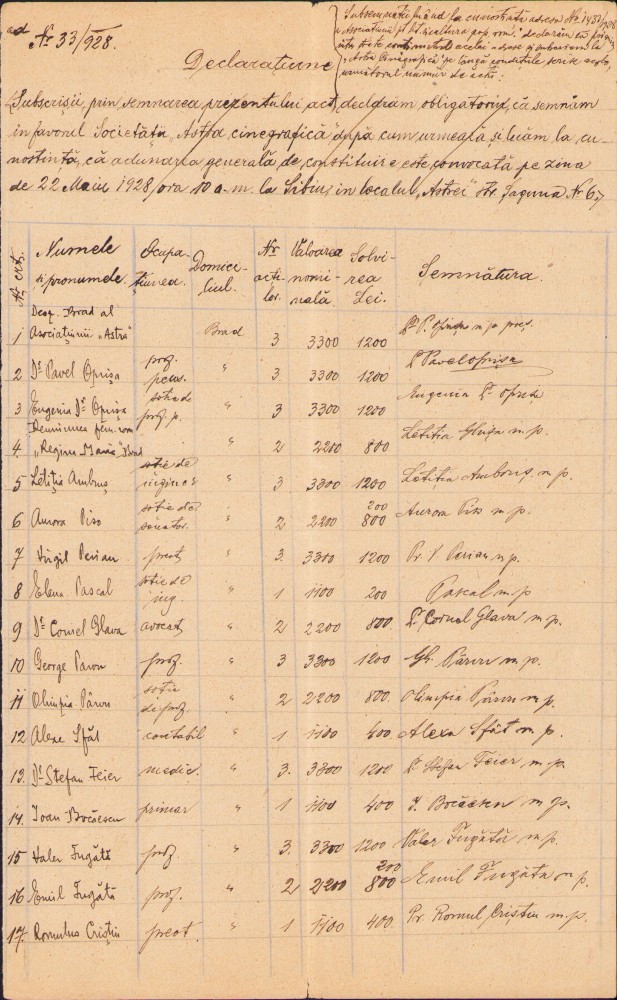 ad Nº 33/928.
Subsemnații luând la cunoștință adresa Nº 1433/928
a Asociațiunii pt. lit. și cultura pop. rom. declarăm că
adresă și aderăm la
"Astra Cinegrafică" pe lângă condițiile scrise acolo,
următorul număr de acții:
Declarațiune
Subscrișii, prin semnarea prezentului act, declarăm obligatoriu, că semnăm
în favorul Societății "Astra cinegrafică" după cum urmează, și luăm la cu-
noștință, că adunarea generală de constituire este convocată pe ziua
de 22 Maiu 1928, ora 10 a. m. la Sibiu, în localul "Astrei" str. Șaguna Nr 6.
Nº crt. Numele și pronumele Ocupa-țiunea. Domici-liul. Nr acți-lor. Valoarea nomi-nală Solvi-rea Lei. Semnătura.
1 Desp. Brad al Asociațiunii "Astra" Brad 3 3300 1200 Dr P. Oprișa m. p. preș.
2 Dr Pavel Oprișa prof. pens. " 3. 3300 1200 Dr Pavel Oprișa
3 Eugenia Dr Oprișa soție de prof. p. " 3 3300 1200 Eugenia Dr Oprișa
4. Reuniunea fem. rom. "Regina Maria" Brad " 2 2200 800 Letiția Glușa m. p.
5 Letiția Ambruș soție de inginer " 3 3300 1200 Letiția Ambruș m. p.
6 Aurora Piso soție de senator. " 2 2200 200 800 Aurora Piso m. p.
7 Virgil Perian preot " 3. 3300 1200 Pr. V. Perian m. p.
8 Elena Pascal soție de ing. " 1 1100 200 Pascal m. p.
9 Dr Cornel Glava avocat " 2 2200 800 Dr Cornel Glava m. p.
10 George Parvu prof. " 3 3300 1200 Gh. Pârvu m. p.
11 Olimpia Pârvu soție de prof. " 2 2200 800. Olimpia Pârvu m. p.
12 Alexe Sfât contabil " 1 1100 400 Alexa Sfât m. p.
13. Dr Stefan Feier medic. " 3. 3300 1200 Dr Stefan Feier m. p.
14. Ioan Bocăescu primar " 1 1100 400 I. Bocăescu m. p.
15 Valer Fugătă prof. " 3. 3300 1200 Valer Fugătă m. p.
16 Emil Fugătă prof. " 2 2200 200 800 Emil Fugăta m. p.
17. Romulus Criștiu preot. " 1 1100 400. Pr. Romul Criștiu m. p.